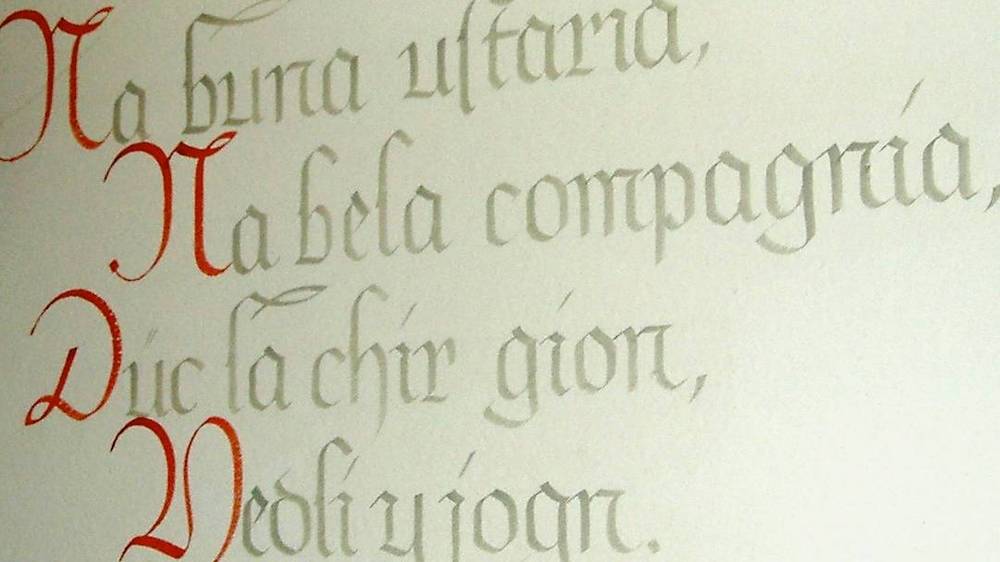 Na buna ustaria,
Na bela compagnia,
Düc la chir gion,
Vedli y jogn.